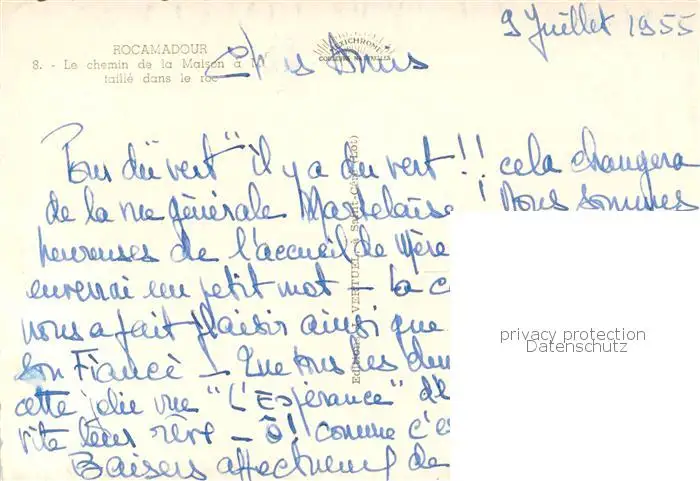 9 Juillet 1955
ROCAMADOUR
8. - Le chemin de la Maison à M
taillé dans le roc
ARTICHROME
COULEURS NATURELLES
Amis
Pour du vert" il y a du vert !! cela changera
de la vue générale Marselaise ! Nous sommes
heureuses de l'accueil de Mère
enverrai un petit mot - la c
nous a fait plaisir ainsi que
son Fiancé - Que tous les
cette jolie vue "L'Espérance" d'
vite leurs rêve - Ô! comme c'es
Baisers affectueux de
Editions VERTUEL, à Saint-Céré (Lot)
privacy protection
Datenschutz